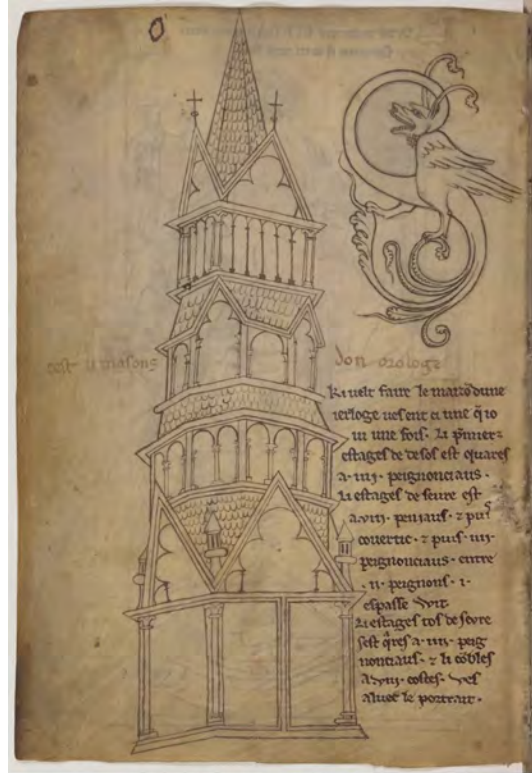 cest li masons don orologe
Ki velt faire le maizō dune
ierloge ves ent ci une q̄ io
vi une fois· Li p̄miers
estages de desos est quares
a·iiii· peignonciaus·
Li estages deseure est
a·viii· peniaus· ⁊ puis
covertic· ⁊ puis iiii·
peignonciaus· entre
·ii· peignons·i·
espasse wit·
Li estages tos de seure
sest q̄res a·iiii· peig
nonciaus· ⁊ li cōbles
a·viii· costes· ves
aluec le portrait·